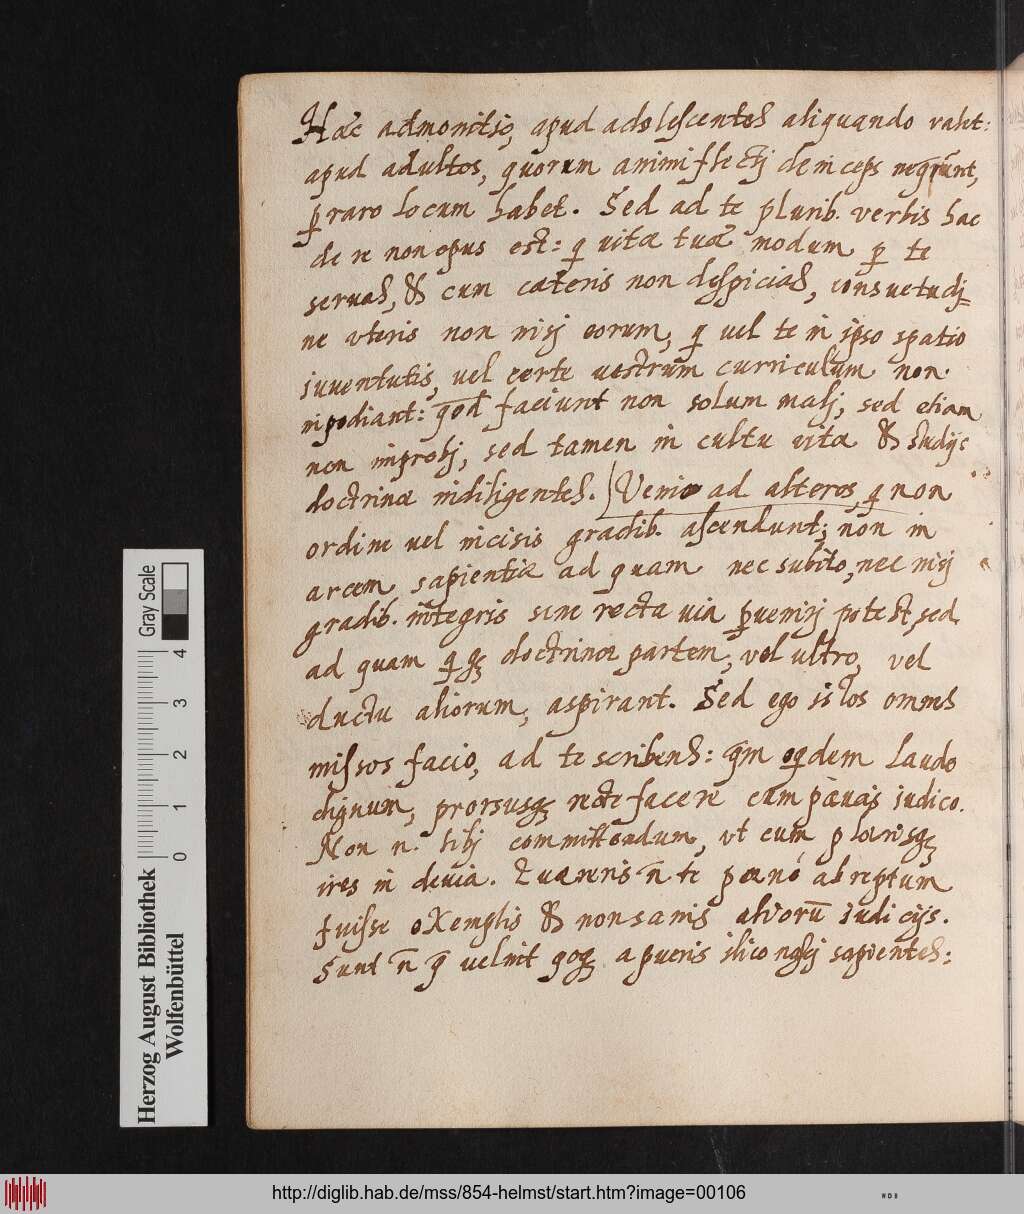 Haec admonitio, apud adolescentes aliquando valet:
apud adultos, quorum animi flectj deinceps neqeunt,
p raro locum habet. Sed ad te plurib. verbis hac
de re non opus est: q vitae tuae modum p te
servas, & cum caeteris non despicias, consuetudj=
ne vteris non nisj eorum, q vel te in ipso spatio
iuventutis, vel certe vestrum curriculum non
inpediant: qod faciunt non solum malj, sed etiam
non improbj, sed tamen in cultu vitae & studijs
doctrinae indiligentes. Venio ad alteros, q non
ordine vel incisis gradib. ascendunt; non in
arcem sapientiae ad quam nec subito, nec nisj
gradib. integris sine recta via pvenirj potest, sed
ad quam qq doctrinae partem, vel ultro, vel
ductu aliorum, aspirant. Sed ego istos omnes
missos facio, ad te scribens: qm eqdem laude
dignum, prorsusq recte facere cum paucis iudico.
Non n. tibj committendum, vt cum plaerisq
ires in devia. Quaereris n te paene abreptum
fuisse exemplis & non sanis aliorū iudicijs.
Sunt n q velint qoq a pueris ilico sapientes:
Herzog August Bibliothek
Wolfenbüttel
Gray Scale
0 1 2 3 4
http://diglib.hab.de/mss/854-helmst/start.htm?image=00106
WDB